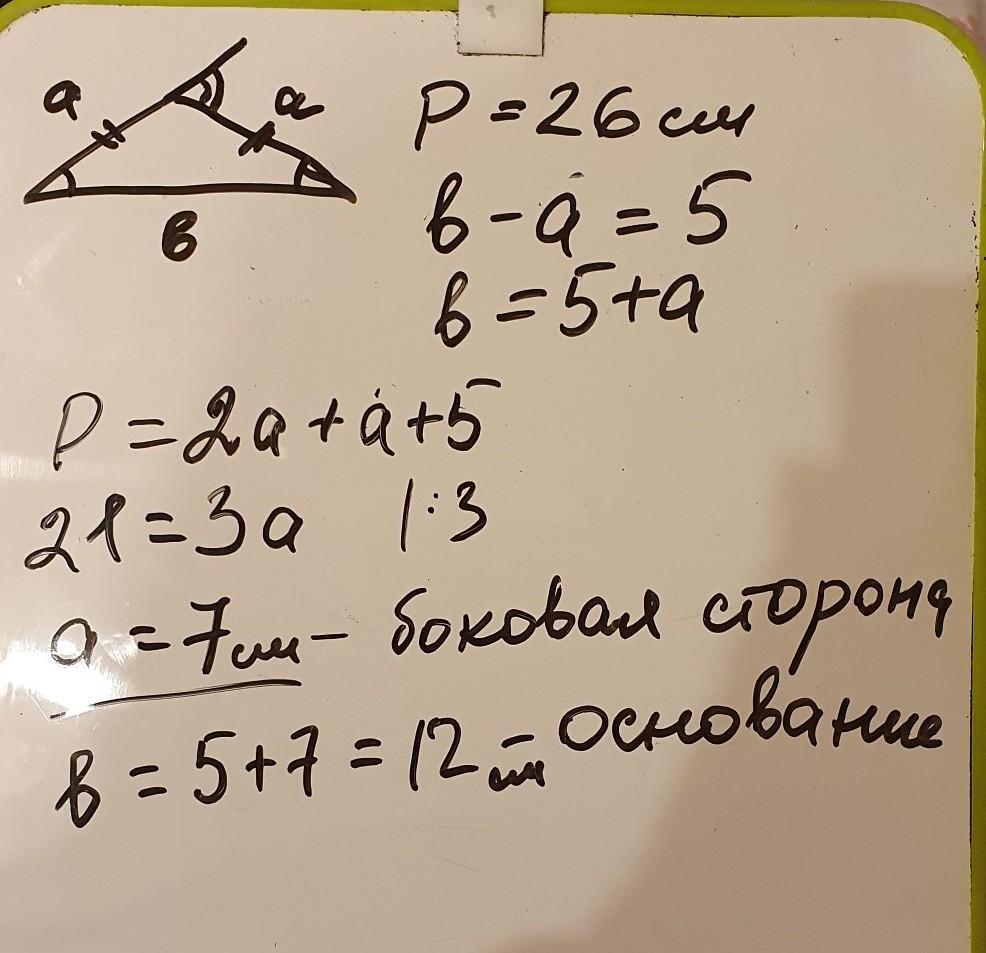 a a
в
P = 26 см
в - а = 5
в = 5 + а
P = 2а + а + 5
21 = 3а |:3
а = 7 см - боковая сторона
в = 5 + 7 = 12 см - основание